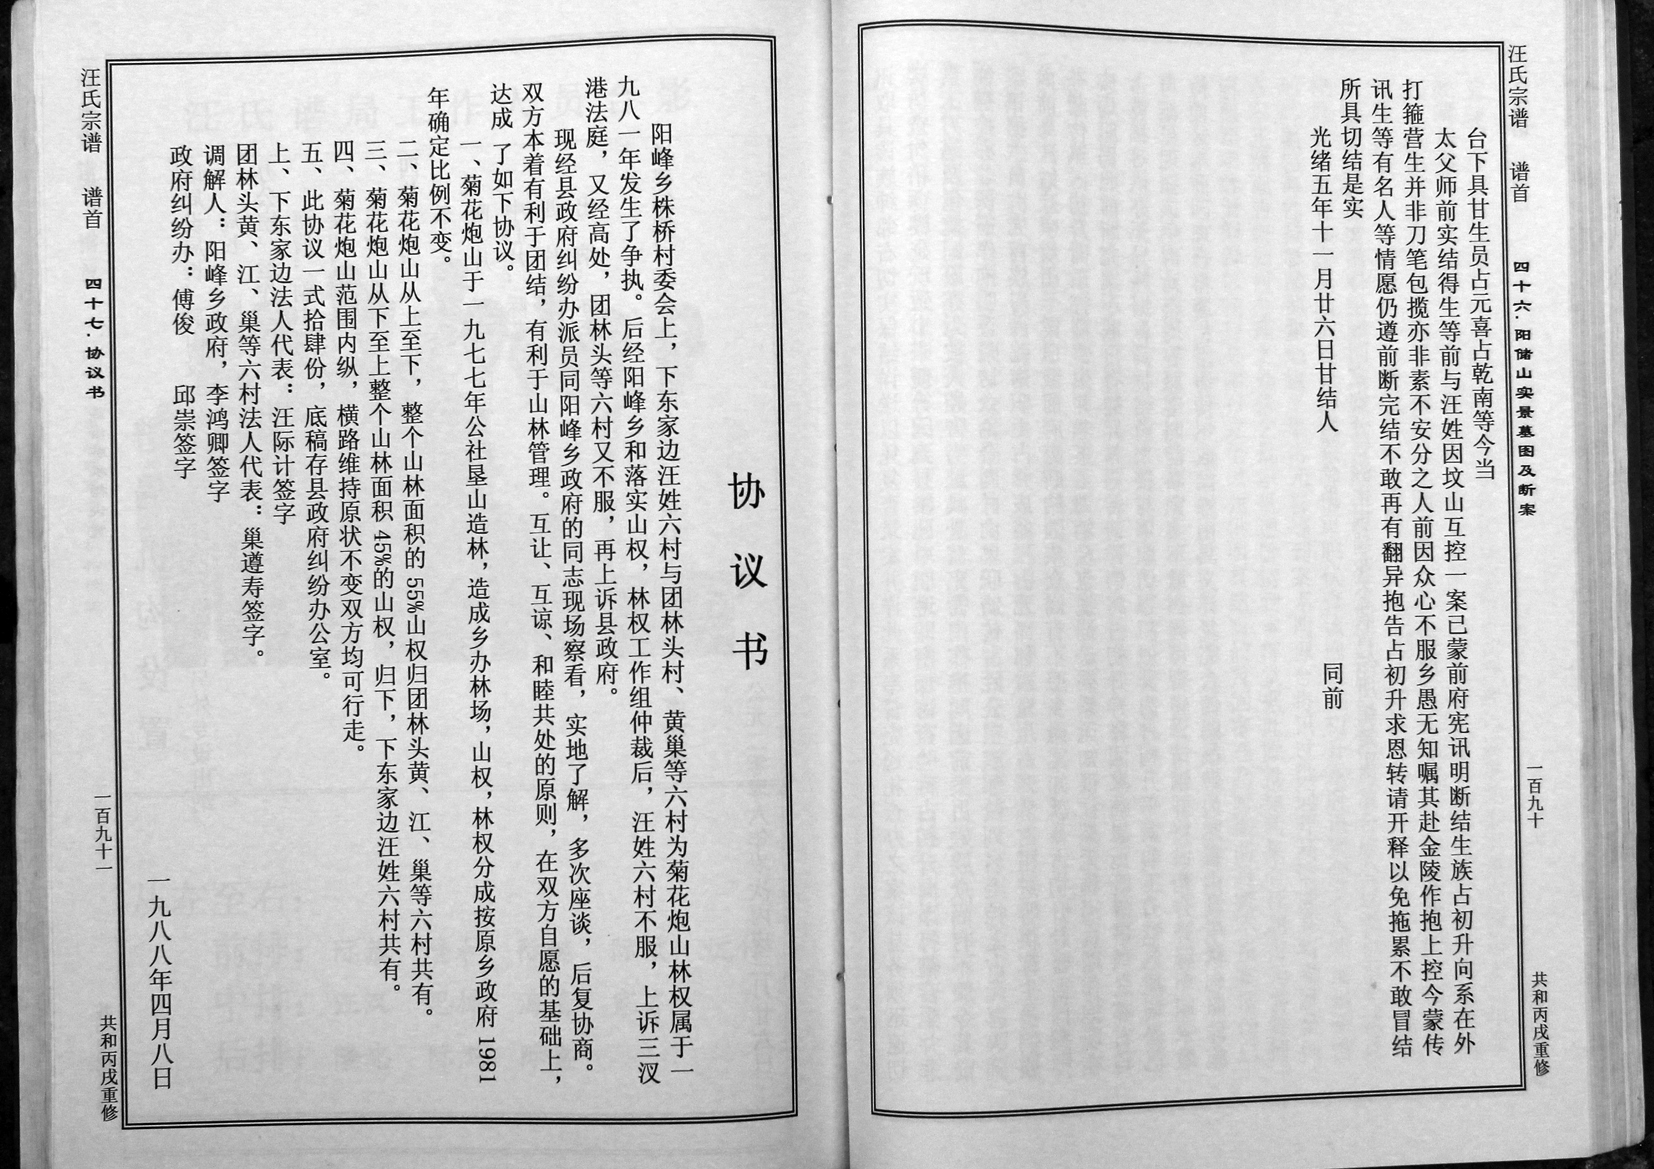 汪氏宗谱 谱首 四十六·阳储山实景墓图及断案 一百九十 共和丙戌重修
台下具甘生员占元喜占乾南等今当
太父师前实结得生等前与汪姓因坟山互控一案已蒙前府宪讯明断结生族占初升向系在外
打箍营生并非刀笔包揽亦非素不安分之人前因众心不服乡愚无知嘱其赴金陵作抱上控今蒙传
讯生等有名人等情愿仍遵前断完结不敢再有翻异抱告占初升求恩转请开释以免拖累不敢冒结
所具切结是实
光绪五年十一月廿六日甘结人 同前
协议书
阳峰乡株桥村委会上，下东家边汪姓六村与团林头村、黄巢等六村为菊花炮山林权属于一
九八一年发生了争执。后经阳峰乡和落实山权，林权工作组仲裁后，汪姓六村不服，上诉三汊
港法庭，又经高处，团林头等六村又不服，再上诉县政府。
现经县政府纠纷办派员同阳峰乡政府的同志现场察看，实地了解，多次座谈，后复协商。
双方本着有利于团结，有利于山林管理。互让、互谅、和睦共处的原则，在双方自愿的基础上，
达成 了如下协议。
一、菊花炮山于一九七七年公社垦山造林，造成乡办林场，山权，林权分成按原乡政府 1981
年确定比例不变。
二、菊花炮山从上至下，整个山林面积的 55%山权归团林头黄、江、巢等六村共有。
三、菊花炮山从下至上整个山林面积 45%的山权，归下，下东家边汪姓六村共有。
四、菊花炮山范围内纵，横路维持原状不变双方均可行走。
五、此协议一式拾肆份，底稿存县政府纠纷办公室。
上、下东家边法人代表：汪际计签字
团林头黄、江、巢等六村法人代表：巢遵寿签字。
调解人：阳峰乡政府，李鸿卿签字
政府纠纷办：傅俊 邱崇签字
一九八八年四月八日
汪氏宗谱 谱首 四十七·协议书 一百九十一 共和丙戌重修